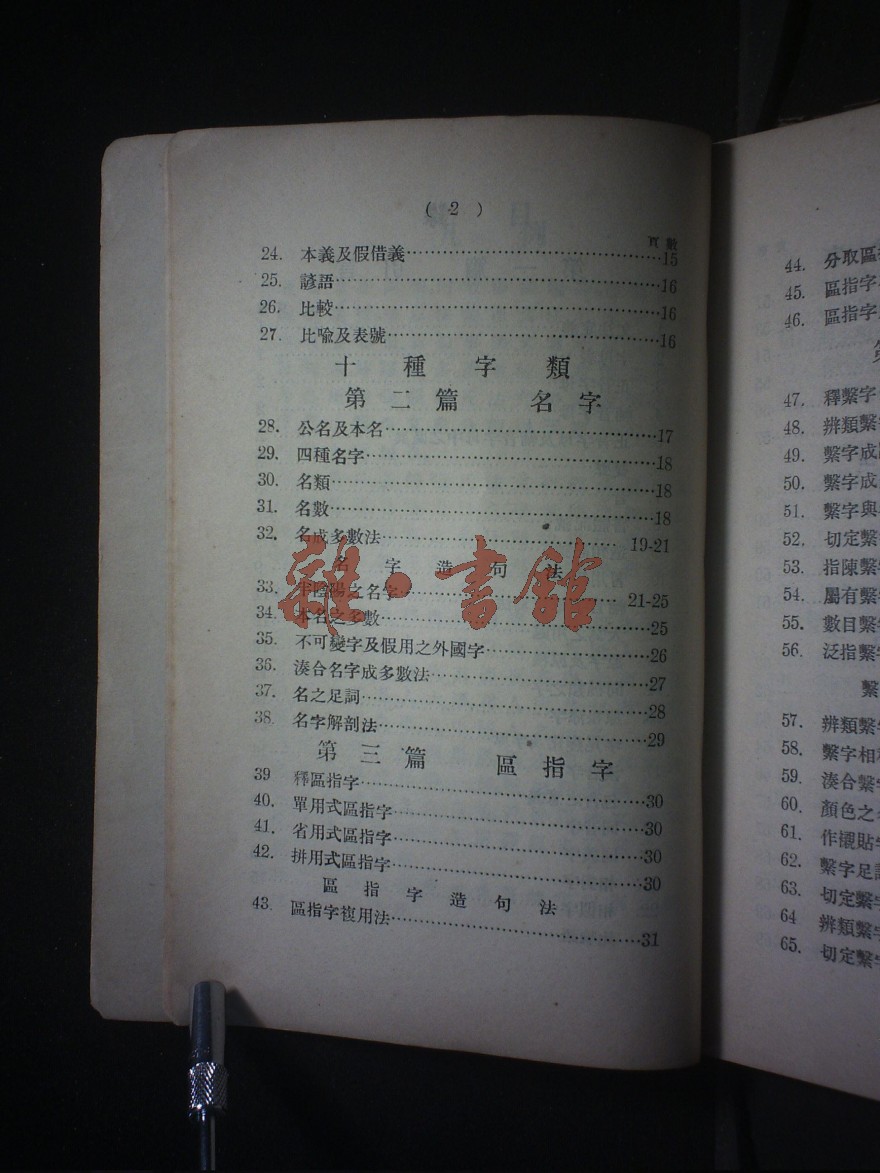 ( 2 )
頁數
24. 本義及假借義……15
25. 諺語……16
26. 比較……16
27. 比喩及表號……16
十種字類
第二篇 名字
28. 公名及本名……17
29. 四種名字……18
30. 名類……18
31. 名數……18
32. 名成多數法……19-21
名字造句法
33. 半陰陽之名字……21-25
34. 本名之多數……25
35. 不可變字及假用之外國字……26
36. 湊合名字成多數法……27
37. 名之足詞……28
38. 名字解剖法……29
第三篇 區指字
39 釋區指字……30
40. 單用式區指字……30
41. 省用式區指字……30
42. 拼用式區指字……30
區指字造句法
43. 區指字複用法……31
雜·書館
44. 分取區指
45. 區指字
46. 區指字
47. 釋繫字
48. 辨類繫
49. 繫字成
50. 繫字成
51. 繫字與
52. 切定繫
53. 指陳繫
54. 屬有繫
55. 數目繫
56. 泛指繫
繫
57. 辨類繫
58. 繫字相
59. 湊合繫
60. 顏色之
61. 作襯貼
62. 繫字足
63. 切定繫
64 辨類繫
65. 切定繫